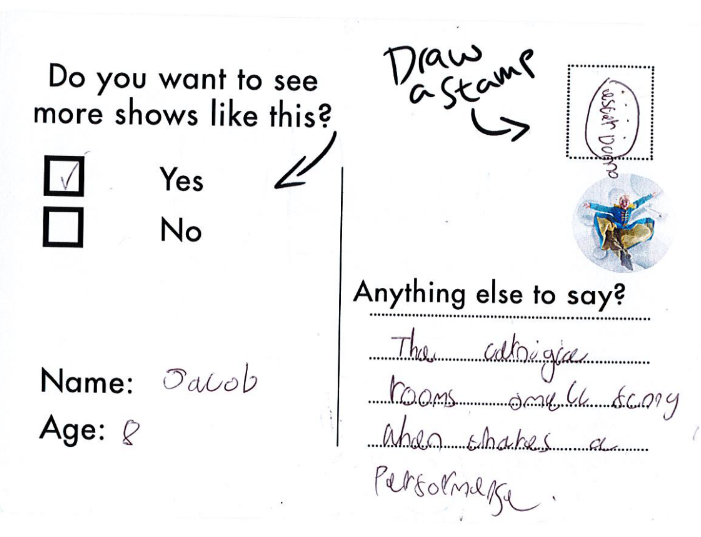 Do you want to see
more shows like this?
Yes
No
Name: Jacob
Age: 8
Draw
a stamp
Anything else to say?
The
rooms smell
when a